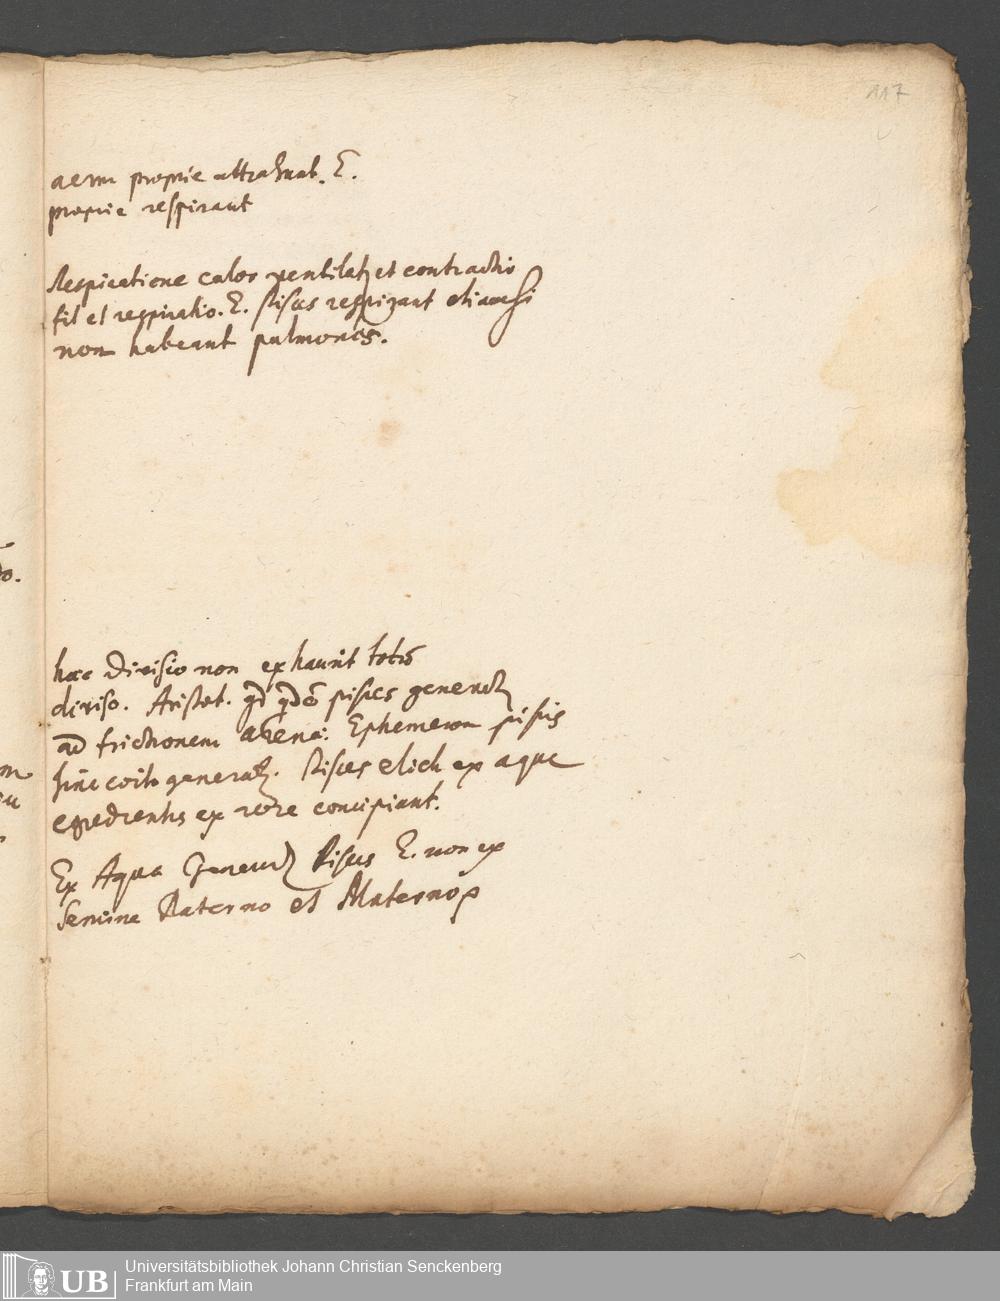 117
aerm proprie attrahunt. E.
proprie respirant
Respiratione calor ventilatʒ et contractio
fit et respiratio. E. Pisces respirant etiamsi
non habeant pulmones.
do.
haec Divisio non exhaurit totū
diviso. Aristot. pisces generat
ad frictionem arenae: Ephemeron piscis
sine coitu generatʒ. Pisces elich ex aque
egredientis ex rore concipiant.
Ex Aqua Generat Pisces E. non ex
Semine Paterno et Materno
UB
Universitätsbibliothek Johann Christian Senckenberg
Frankfurt am Main